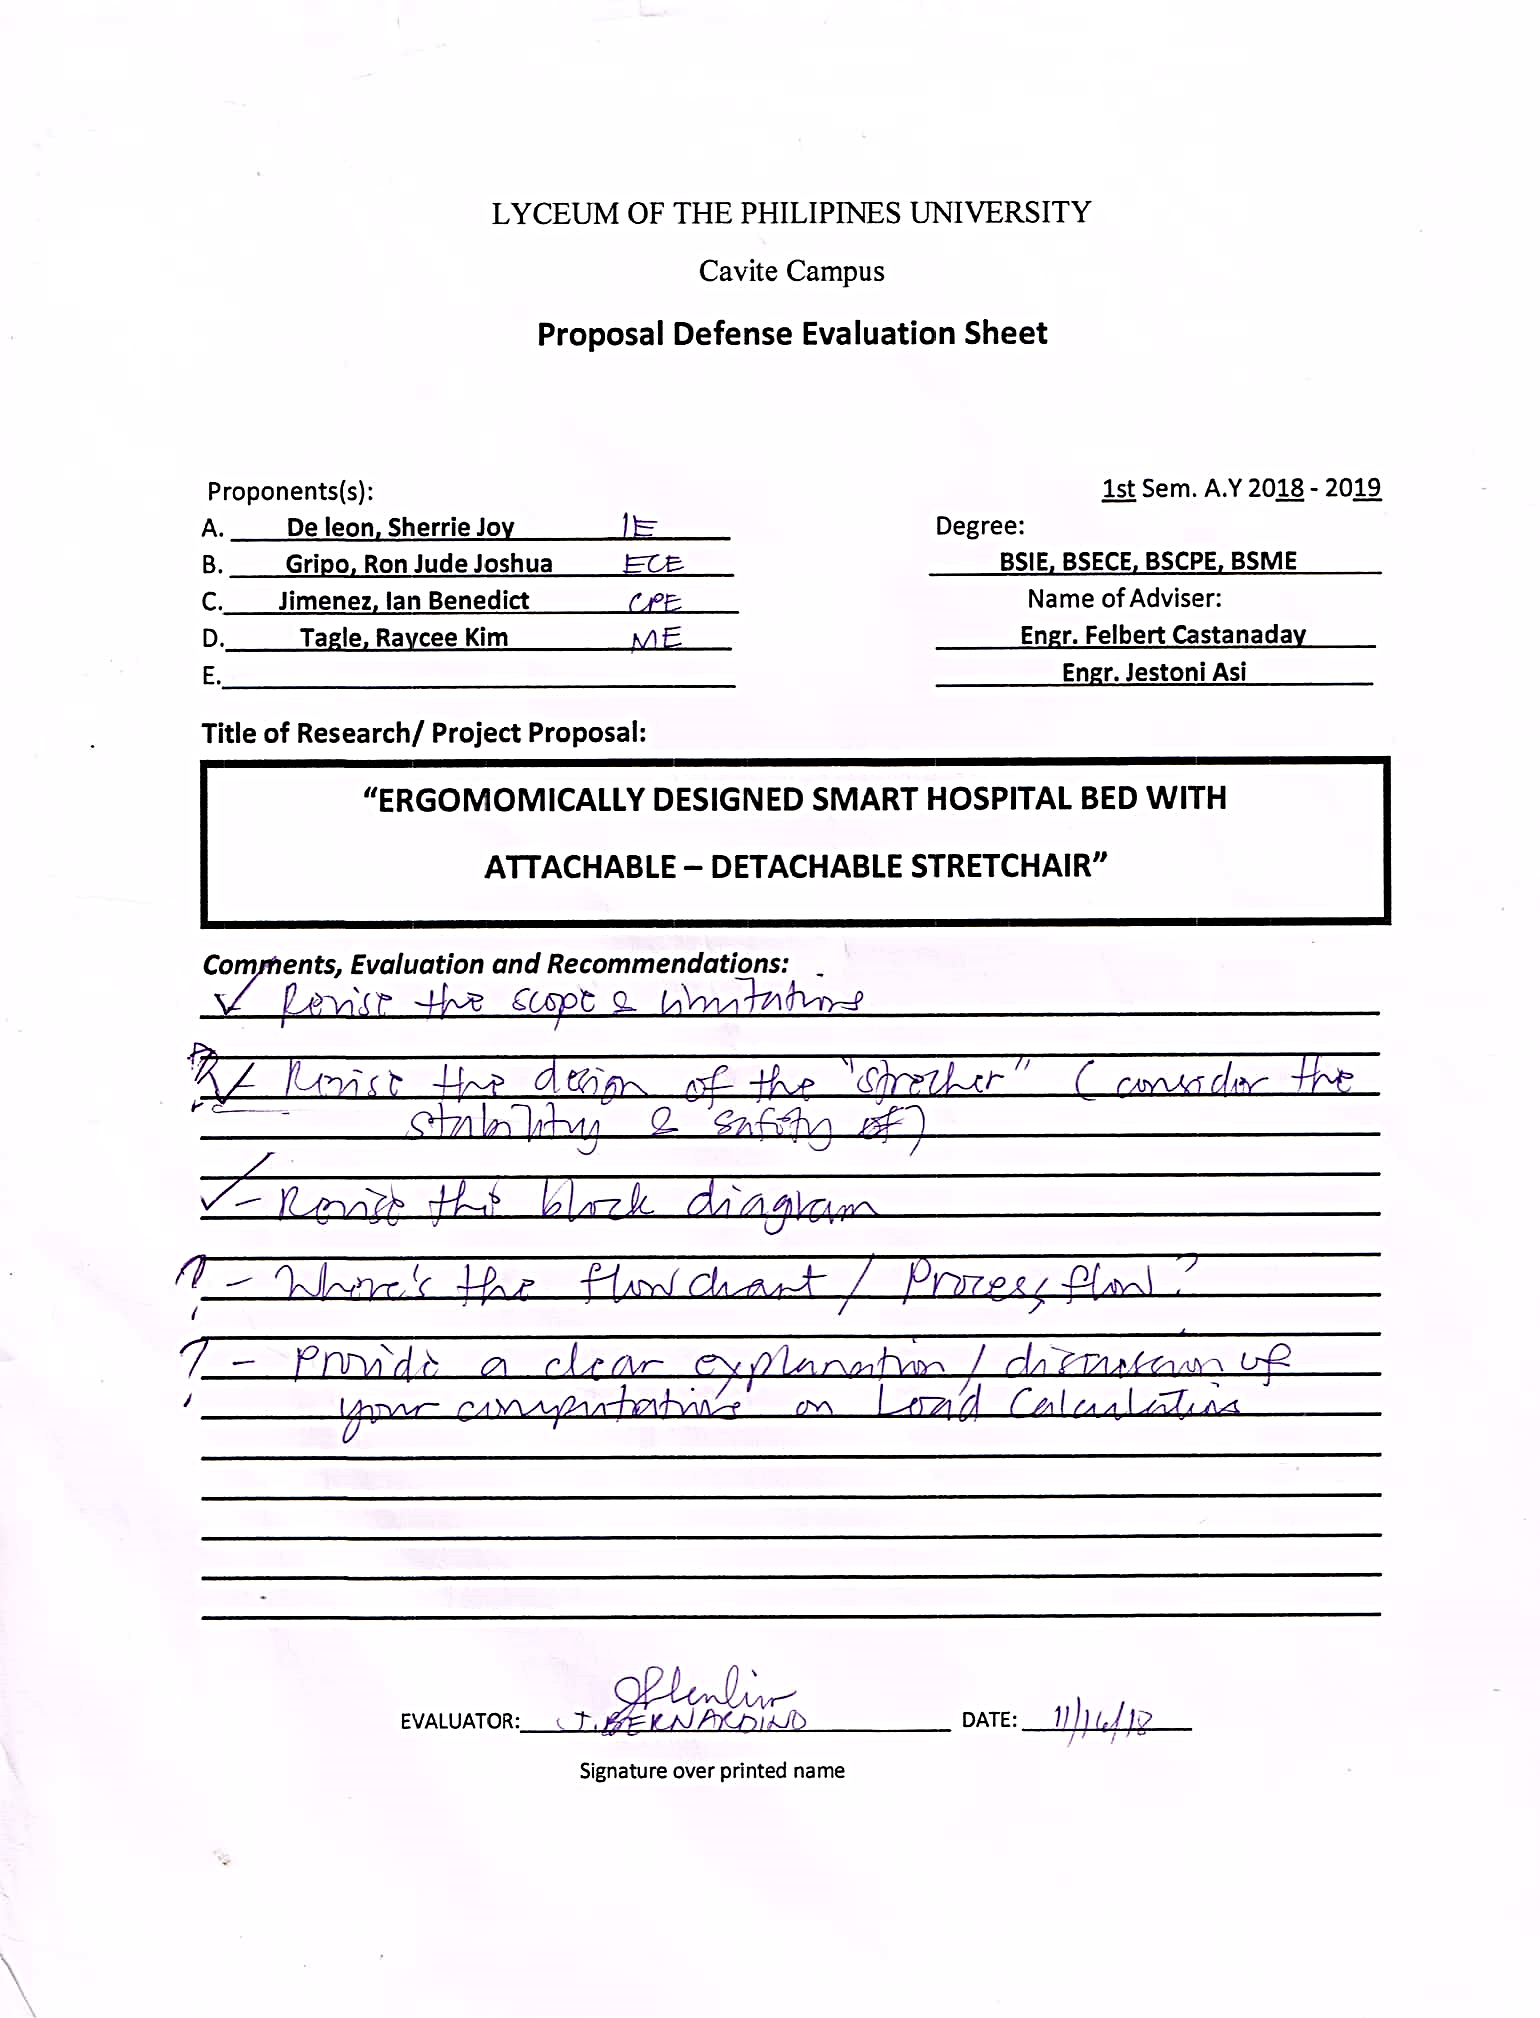 LYCEUM OF THE PHILIPINES UNIVERSITY
Cavite Campus
Proposal Defense Evaluation Sheet
Proponents(s):
1st Sem. A.Y 2018 - 2019
A. De leon, Sherrie Joy IE
Degree:
B. Gripo, Ron Jude Joshua ECE
BSIE, BSECE, BSCPE, BSME
C. Jimenez, Ian Benedict CPE
Name of Adviser:
D. Tagle, Raycee Kim ME
Engr. Felbert Castanaday
E.
Engr. Jestoni Asi
Title of Research/ Project Proposal:
“ERGOMOMICALLY DESIGNED SMART HOSPITAL BED WITH
ATTACHABLE – DETACHABLE STRETCHAIR”
Comments, Evaluation and Recommendations:
✓ Revise the scope & limitations
- Revise the design of the "strecher" (consider the
stability & safety of)
✓ - Revise the block diagram
? - Where's the flowchart / Process flow?
? - Provide a clear explanation / discussion of
your computations on Load Calculations
EVALUATOR: J. BERNARDINO DATE: 11/16/18
Signature over printed name